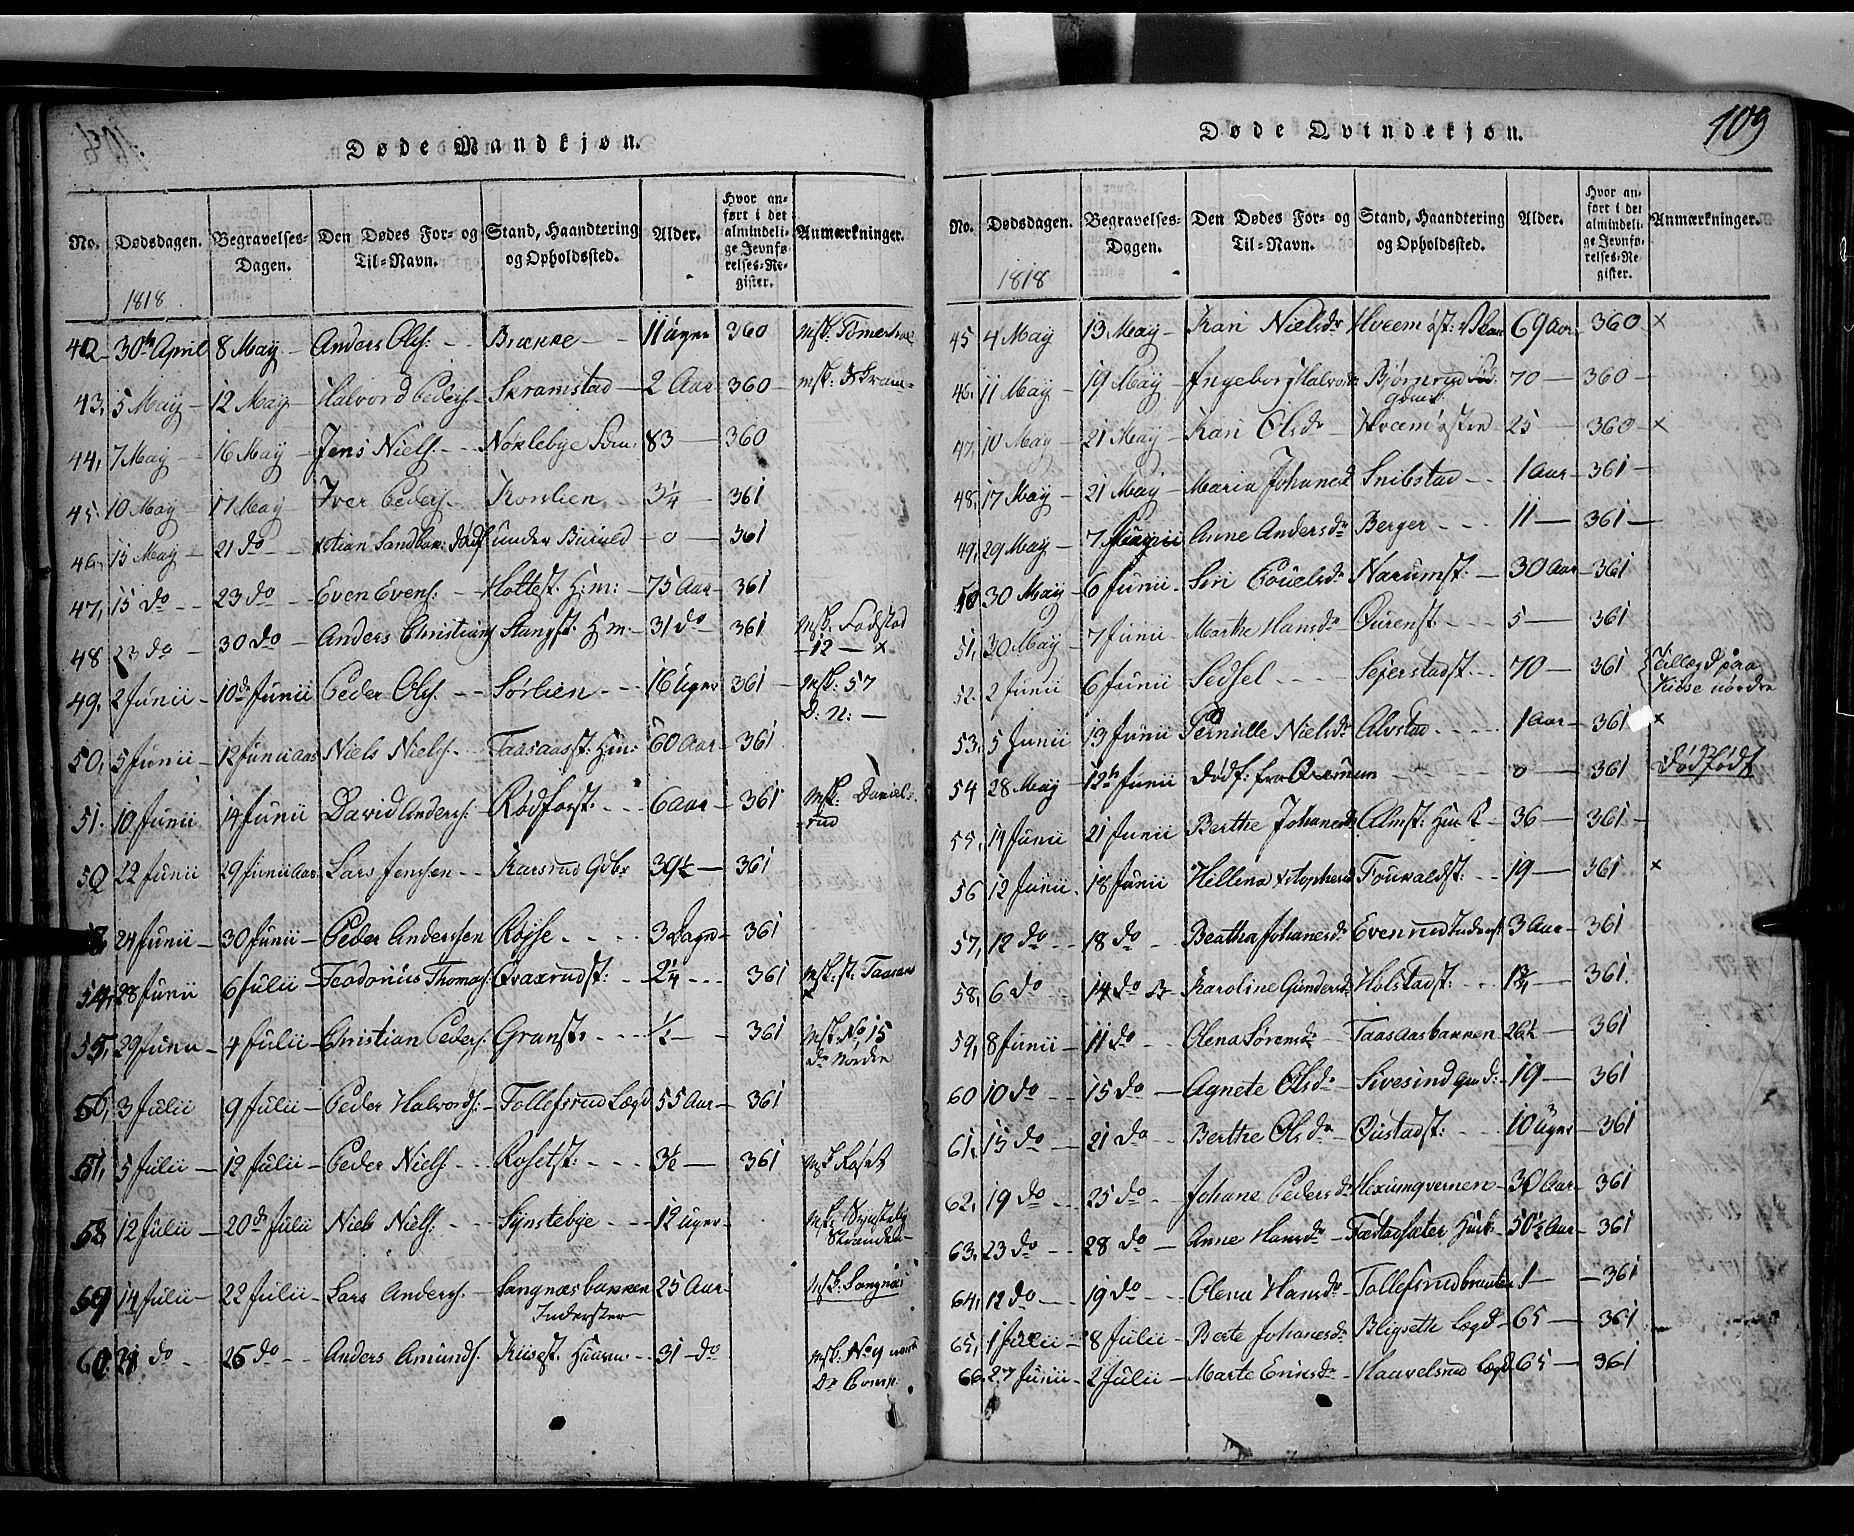 Døde Mandkjøn.
No. Dødsdagen. Begravelses-Dagen. Den Dødes For- og Til-Navn. Stand, Haandtering og Opholdssted. Alder. Hvor anført i det almindelige Jevnførelses-Register. Anmærkninger.
1818
42 30th April 8 May Anders Ols: Brække 11 uger 360
43, 5 May 12 May Halvord Peders: Skramstad 2 Aar 360 Msk: Skram-
44, 7 May 16 May Jens Niels: Noklebye 83 360
45. 10 May 17 May Iver Peders. Korslien 3/4 361
46 15 May 21 do Sandbær: dødf under 0 361
47, 15 do 23 do Even Evens: Holtest. H:m: 75 Aar 361
48 23 do 30 do Anders Christians Stangst. H:m: 31 do 361 Msk. Fodstad
12 x
49, 2 Junii 10de Junii Peder Ols: Sørlien 16 Uger 361 Msk: 57
D: N:
50, 5 Junii 12 Junii Niels Niels: Taasaasst. Hm: 60 Aar 361
51. 10 Junii 14 Junii David Anders: Rødforst: 6 aar 361 Msk: Daniels-
rud
52 22 Junii 29 Junii Lars Jenssen Karsrud 39 1/2 361
24 Junii 30 Junii Peder Anderssen Røjse 3 Dage 361
54, 28 Junii 6 Julii Thomas: 2 1/4 361 Msk: st: Taasaas
x
55, 29 Junii 4 Julii Christian Peders: Granst: 1/2 361 Msk No 15
Do Nordre
56, 3 Julii 9 Julii Peder Halvords: Tollefsrud Lægd 55 Aar 361
5 Julii 12 Julii Peder Niels Rosetst: 3 1/2 361 Msk Roset
58 12 Julii 20de Julii Niels Niels: Synstebye 12 uger Msk: Synsteby
Stranden
14 Julii 22 Julii Lars Anders. Sangnæsbakken 25 Aar Msk: Sangnæs
Inderster
60. 21 do 26 do Anders Amunds: Kiisest. Huusm: 31 do Msk: No 9
Do
Døde Qvindekjøn.
109
No. Dødsdagen. Begravelses-Dagen. Den Dødes For- og Til-Navn. Stand, Haandtering og Opholdssted. Alder. Hvor anført i det almindelige Jevnførelses-Register. Anmærkninger.
1818
45 4 May 13 May Kari Nielsdr Hveem øst: 69 aar 360 x
46. 11 May 19 May Ingeborg Halvorsdr Bjørnerud 70 360
47, 10 May 21 May Kari Olsdr Hveem østre 25 360 x
48, 17 May 21 May Maria Johanesd Snibstad 1 Aar 361
49, 29 May 7 Junii Anne Andersdr Berger 11 361
50 30 May 6 Junii Siri Poulsdr Narumst: 30 Aar 361
51, 30 May 7 Junii Marthe Hansdr Qurenst. 5 361
52. 2 Junii 6 Junii Sidsel Sejerstadst. 70 361 Tillægd paa
Kiøse nordre
53. 5 Junii 13 Junii Pernille Nielsdr Alvstad 1 aar 361 x
54 28 May 12th Junii dødf: fra 0 361 Dødfødt
55, 14 Junii 21 Junii Berthe Johanesdr Almst: Huusk 36 361
56 12 Junii. 18 Junii Hellena xstophersd st: 19 361 x
57, 12 do 18 do Beatha Johanesdr Evenrud Inderst 3 Aar 361
58, 6 do 14 do Karoline Gundersdr Holstadst: 1 3/4 361.
59, 8 Junii 11 do Olena Sørensdr Taasaasbakken 26 1/2 361
60 10 do 15 do Agnete Olsdr Sivesind 19 361
61, 15 do 21 do Berthe Olsdr Qustadst: 10 Uger 361
62, 19 do 25 do Johane Pedersdr Hexumqvernen 30 Aar 361
63. 23 do 28 do Anne Hansdr Fæstadsæter Husk 50 1/2 Aar 361
64, 12 do 19 do Olena Hansdr Tollefsrudbraaten 1 361
65, 1 Julii 8 Julii Berte Johanesdr Bligseth Lægd 65 361
66. 27 Junii 2 Julii Marte Erichsdr Haavelsrud Lægd 65 361